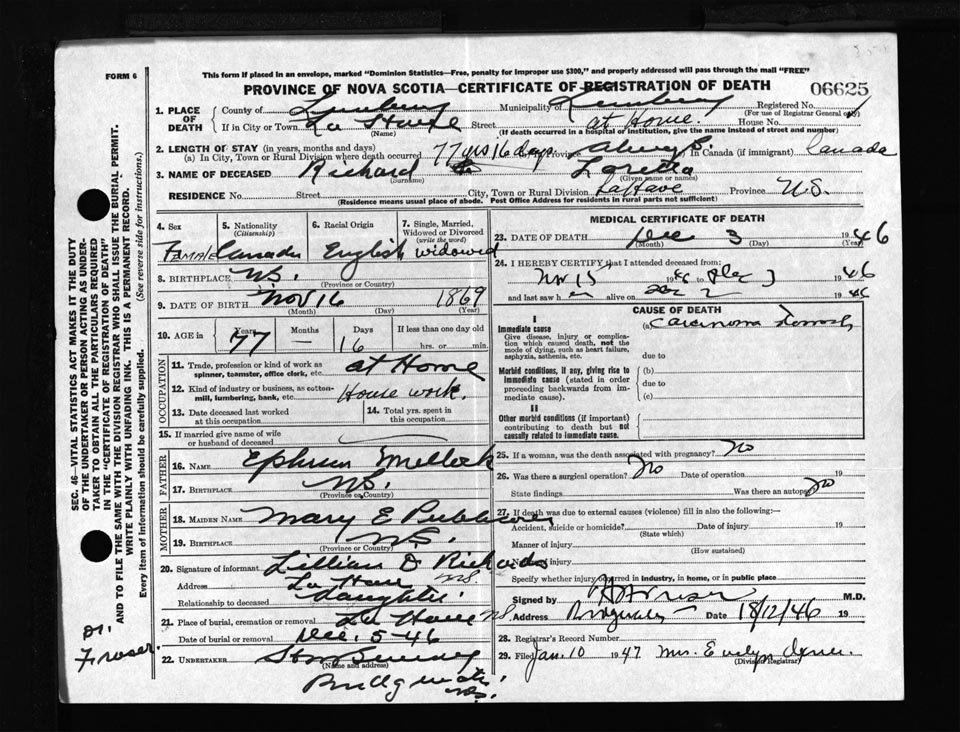 FORM 6
This form if placed in an envelope, marked "Dominion Statistics—Free, penalty for improper use $300," and properly addressed will pass through the mail "FREE"
PROVINCE OF NOVA SCOTIA—CERTIFICATE OF REGISTRATION OF DEATH
06625
1. PLACE OF DEATH
County of Lunenburg Municipality of Lunenburg Registered No.
(For use of Registrar General only)
If in City or Town La Have Street at Home. House No.
(Name) (If death occurred in a hospital or institution, give the name instead of street and number)
2. LENGTH OF STAY (in years, months and days)
(a) In City, Town or Rural Division where death occurred 77 yrs 16 days Province always. In Canada (if immigrant) Canada
3. NAME OF DECEASED Richard Loretta
(Surname) (Given name or names)
RESIDENCE No. Street City, Town or Rural Division LaHave Province N.S.
(Residence means usual place of abode. Post Office Address for residents in rural parts not sufficient)
4. Sex
Female
5. Nationality
(Citizenship)
Canadian
6. Racial Origin
English
7. Single, Married, Widowed or Divorced
(write the word)
widowed
8. BIRTHPLACE N.S.
(Province or Country)
9. DATE OF BIRTH Nov 16 1869
(Month) (Day) (Year)
10. AGE in Years Months Days If less than one day old
77 — 16 hrs. or min.
OCCUPATION
11. Trade, profession or kind of work as spinner, teamster, office clerk, etc. at Home
12. Kind of industry or business, as cotton-mill, lumbering, bank, etc. House work.
13. Date deceased last worked at this occupation
14. Total yrs. spent in this occupation
15. If married give name of wife or husband of deceased
FATHER
16. NAME Ephrim
17. BIRTHPLACE N.S.
(Province or Country)
MOTHER
18. MAIDEN NAME Mary E Publicover
19. BIRTHPLACE N.S.
(Province or Country)
20. Signature of informant Lillian D Richards
Address La Have N.S.
Relationship to deceased daughter
21. Place of burial, cremation or removal La Have N.S.
Date of burial or removal Dec. 5-46
22. UNDERTAKER Sweeney
(Name and address)
Bridgewater N.S.
MEDICAL CERTIFICATE OF DEATH
23. DATE OF DEATH Dec 3 1946
(Month) (Day) (Year)
24. I HEREBY CERTIFY that I attended deceased from:
Nov 15 1946 to Dec 3 1946
and last saw her alive on Dec 2 1946
CAUSE OF DEATH
I
Immediate cause (a) Carcinoma
Give disease, injury or complication which caused death, not the mode of dying, such as heart failure, asphyxia, asthenia, etc.
due to
Morbid conditions, if any, giving rise to immediate cause (stated in order proceeding backwards from immediate cause).
(b)
due to
(c)
II
Other morbid conditions (if important) contributing to death but not causally related to immediate cause.
25. If a woman, was the death associated with pregnancy? No
26. Was there a surgical operation? No Date of operation 19
State findings Was there an autopsy? No
27. If death was due to external causes (violence) fill in also the following:—
Accident, suicide or homicide? Date of injury 19
(State which)
Manner of injury
(How sustained)
Nature of injury
Specify whether injury occurred in industry, in home, or in public place
Signed by M.D.
Address Bridgewater Date 18/12/46 19
28. Registrar's Record Number
29. Filed Jan. 10 1947 Mrs. Evelyn
(Division Registrar)
SEC. 46—VITAL STATISTICS ACT MAKES IT THE DUTY
OF THE UNDERTAKER OR PERSON ACTING AS UNDERTAKER TO OBTAIN ALL THE PARTICULARS REQUIRED
IN THE "CERTIFICATE OF REGISTRATION OF DEATH"
AND TO FILE THE SAME WITH THE DIVISION REGISTRAR WHO SHALL ISSUE THE BURIAL PERMIT.
WRITE PLAINLY WITH UNFADING INK. THIS IS A PERMANENT RECORD.
Every item of information should be carefully supplied. (See reverse side for instructions.)
Dr. Fraser.